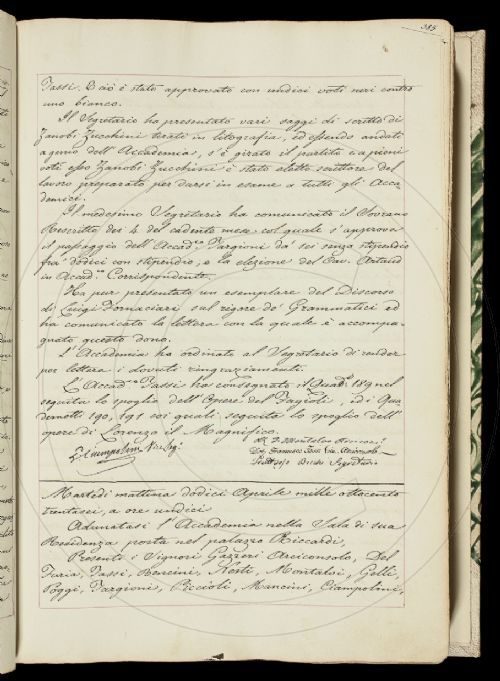 385
Tassi. E ciò è stato approvato con undici voti neri contro
uno bianco.
Il Segretario ha presentato varj saggi di scritto di
Zanobi Zucchini tirati in litografia, ed essendo andati
a genio dell'Accademia, s'è girato il partito e a pieni
voti esso Zanobi Zucchini è stato eletto scrittore del
lavoro preparato per darsi in esame a tutti gli Acca
demici.
Il medesimo Segretario ha comunicato il Sovrano
Rescritto dei 4 del cadente mese col quale s'approva
il passaggio dell'Accad.co Targioni da' sei senza stipendio
fra' dodici con stipendio, e la elezione del Cav. Artaud
in Accad.co Corrispondente.
Ha pur presentato un esemplare del Discorso
di Luigi Fornaciari sul rigore de' Grammatici ed
ha comunicata la lettera con la quale è accompa-
gnato questo dono.
L'Accademia ha ordinato al Segretario di render
per lettera i dovuti ringraziamenti.
L'Accad.co Tassi ha consegnato il Quad.o 189 nel
seguita lo spoglio dell'Opere del Fagioli, ed i Qua
dernotti 190, 191 coi quali seguita lo spoglio dell'
opere di Lorenzo il Magnifico.
Francesco Tassi
Segretario
Martedì mattina dodici Aprile mille ottocento
trentasei, a ore undici
Adunatasi l'Accademia nella Sala di sua
Residenza posta nel palazzo Riccardi,
Presenti i Signori Gazzeri Arciconsolo, Del
Furia, Tassi, Bencini, Nesti, Montalvi, Gelli,
Poggi, Targioni, Piccioli, Mancini, Ciampolini,